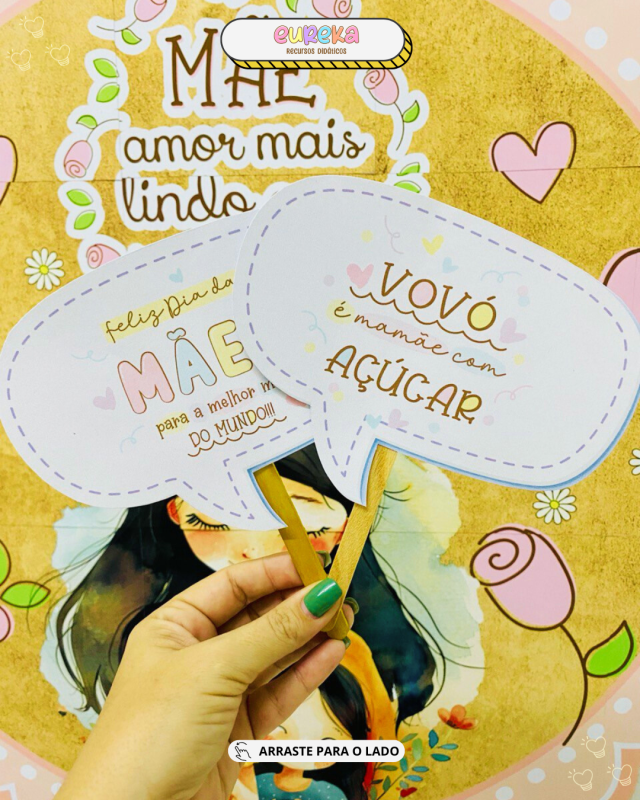 eureka
RECURSOS DIDÁTICOS
MÃE
amor mais
lindo
feliz Dia da
MÃE
para a melhor
DO MUNDO!!!
VOVÓ
é mamãe com
AÇÚCAR
ARRASTE PARA O LADO